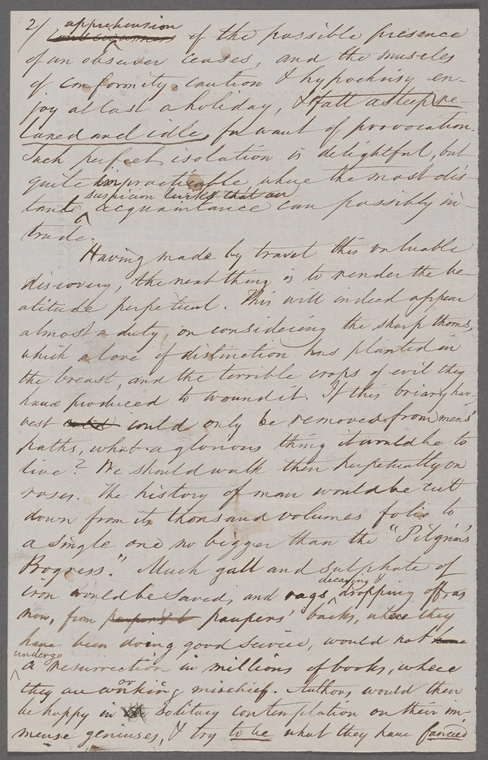 2/ apprehension
of the possible presence
of an observer ceases, and the muscles
of conformity, caution & hypocrisy en-
joy at last a holiday, & fall asleep, re-
laxed and idle, for want of provocation.
Such perfect isolation is delightful, but
quite impracticable where the most dis
suspicion lurks that an
tant acquaintance can possibly in
trude.
Having made by travel this valuable
discovery, the next thing is to render the be-
atitude perpetual. This will indeed appear
almost a duty, on considering the sharp thorns,
which a love of distinction has planted in
the breast, and the terrible crops of evil they
have produced to wound it. If this briary har
vest could could only be removed from men's
paths, what a glorious thing it would be to
live? We should walk then perpetually on
roses. The history of man would be cut
down from its thousand volumes folio to
a single one no bigger than the "Pilgrim's
Progress." Much gall and sulphate of
decently
iron would be saved, and rags dropping off as
now, from paupers' backs, where they
have been doing good service, would not have
undergo
a resurrection in millions of books, where
they are working mischief. Authors would then
be happy in solitary contemplation on their im
mense geniuses, & try to be what they have fancied